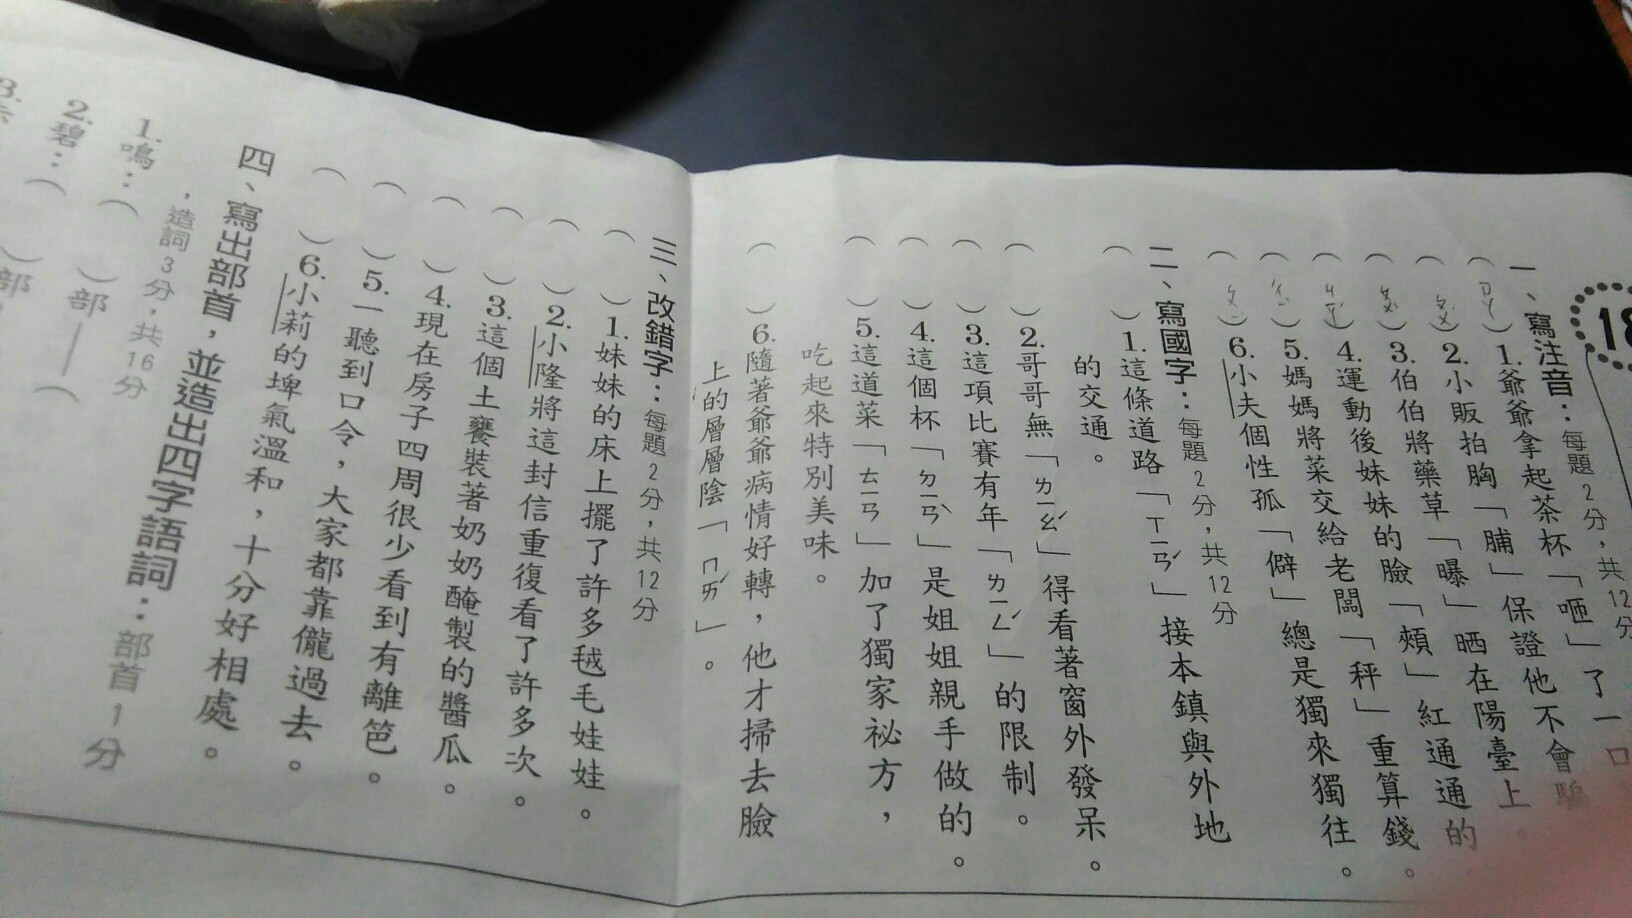 18
一、寫注音：每題2分，共12分
(ㄗㄚ)1.爺爺拿起茶杯「咂」了一口
( )2.小販拍胸「脯」保證他不會騙
( )3.伯伯將藥草「曝」晒在陽臺上。
( )4.運動後妹妹的臉「頰」紅通通的
( )5.媽媽將菜交給老闆「秤」重算錢。
( )6.小夫個性孤「僻」總是獨來獨往。
二、寫國字：每題2分，共12分
( )1.這條道路「ㄒㄧㄢˊ」接本鎮與外地
的交通。
( )2.哥哥無「ㄌㄧㄠˊ」得看著窗外發呆。
( )3.這項比賽有年「ㄌㄧㄥˊ」的限制。
( )4.這個杯「ㄉㄧㄢˋ」是姐姐親手做的。
( )5.這道菜「ㄊㄧㄢ」加了獨家祕方，
吃起來特別美味。
( )6.隨著爺爺病情好轉，他才掃去臉
上的層層陰「ㄇㄞˊ」。
三、改錯字：每題2分，共12分
( )1.妹妹的床上擺了許多毧毛娃娃。
( )2.小隆將這封信重復看了許多次。
( )3.這個土饔裝著奶奶醃製的醬瓜。
( )4.現在房子四周很少看到有離笆。
( )5.一聽到口令，大家都靠儱過去。
( )6.小莉的埤氣溫和，十分好相處。
四、寫出部首，並造出四字語詞：部首1分
，造詞3分，共16分
1.鳴：( )部——(
2.碧：( )部
3.